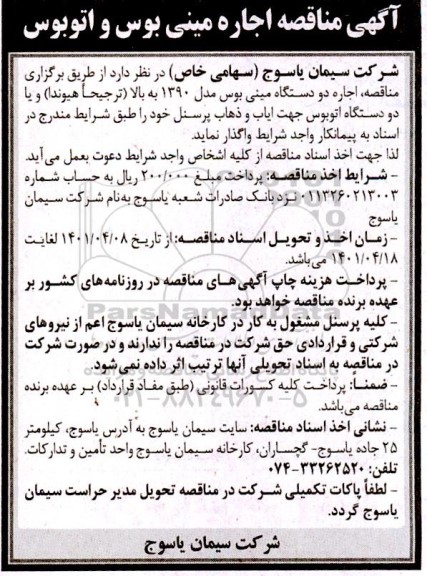 آگهی مناقصه اجاره مینی بوس و اتوبوس
شرکت سیمان یاسوج (سهامی خاص) در نظر دارد از طریق برگزاری
مناقصه، اجاره دو دستگاه مینی بوس مدل ۱۳۹۰ به بالا (ترجیحاً هیوندا) و یا
دو دستگاه اتوبوس جهت ایاب و ذهاب پرسنل خود را طبق شرایط مندرج در
اسناد به پیمانکار واجد شرایط واگذار نماید.
لذا جهت اخذ اسناد مناقصه از کلیه اشخاص واجد شرایط دعوت بعمل می‌آید.
- شرایط اخذ مناقصه: پرداخت مبلغ ۲۰۰/۰۰۰ ریال به حساب شماره
۰۱۱۳۲۶۰۲۱۳۰۰۳ نزد بانک صادرات شعبه یاسوج به‌نام شرکت سیمان
یاسوج
- زمان اخذ و تحویل اسناد مناقصه: از تاریخ ۱۴۰۱/۰۴/۰۸ لغایت
۱۴۰۱/۰۴/۱۸ می‌باشد.
- پرداخت هزینه چاپ آگهی‌های مناقصه در روزنامه‌های کشور بر
عهده برنده مناقصه خواهد بود.
- کلیه پرسنل مشغول به کار در کارخانه سیمان یاسوج اعم از نیروهای
شرکتی و قراردادی حق شرکت در مناقصه را ندارند و در صورت شرکت
در مناقصه به اسناد تحویلی آنها ترتیب اثر داده نمی‌شود.
- ضمناً: پرداخت کلیه کسورات قانونی (طبق مفاد قرارداد) بر عهده برنده
مناقصه می‌باشد.
- نشانی اخذ اسناد مناقصه: سایت سیمان یاسوج به آدرس یاسوج، کیلومتر
۲۵ جاده یاسوج- گچساران، کارخانه سیمان یاسوج واحد تأمین و تدارکات.
تلفن: ۳۳۲۶۲۵۲۰-۰۷۴
- لطفاً پاکات تکمیلی شرکت در مناقصه تحویل مدیر حراست سیمان
یاسوج گردد.
شرکت سیمان یاسوج
ParsNamadData
۰۲۱-۸۸۳۴۹۶۷۰-۵